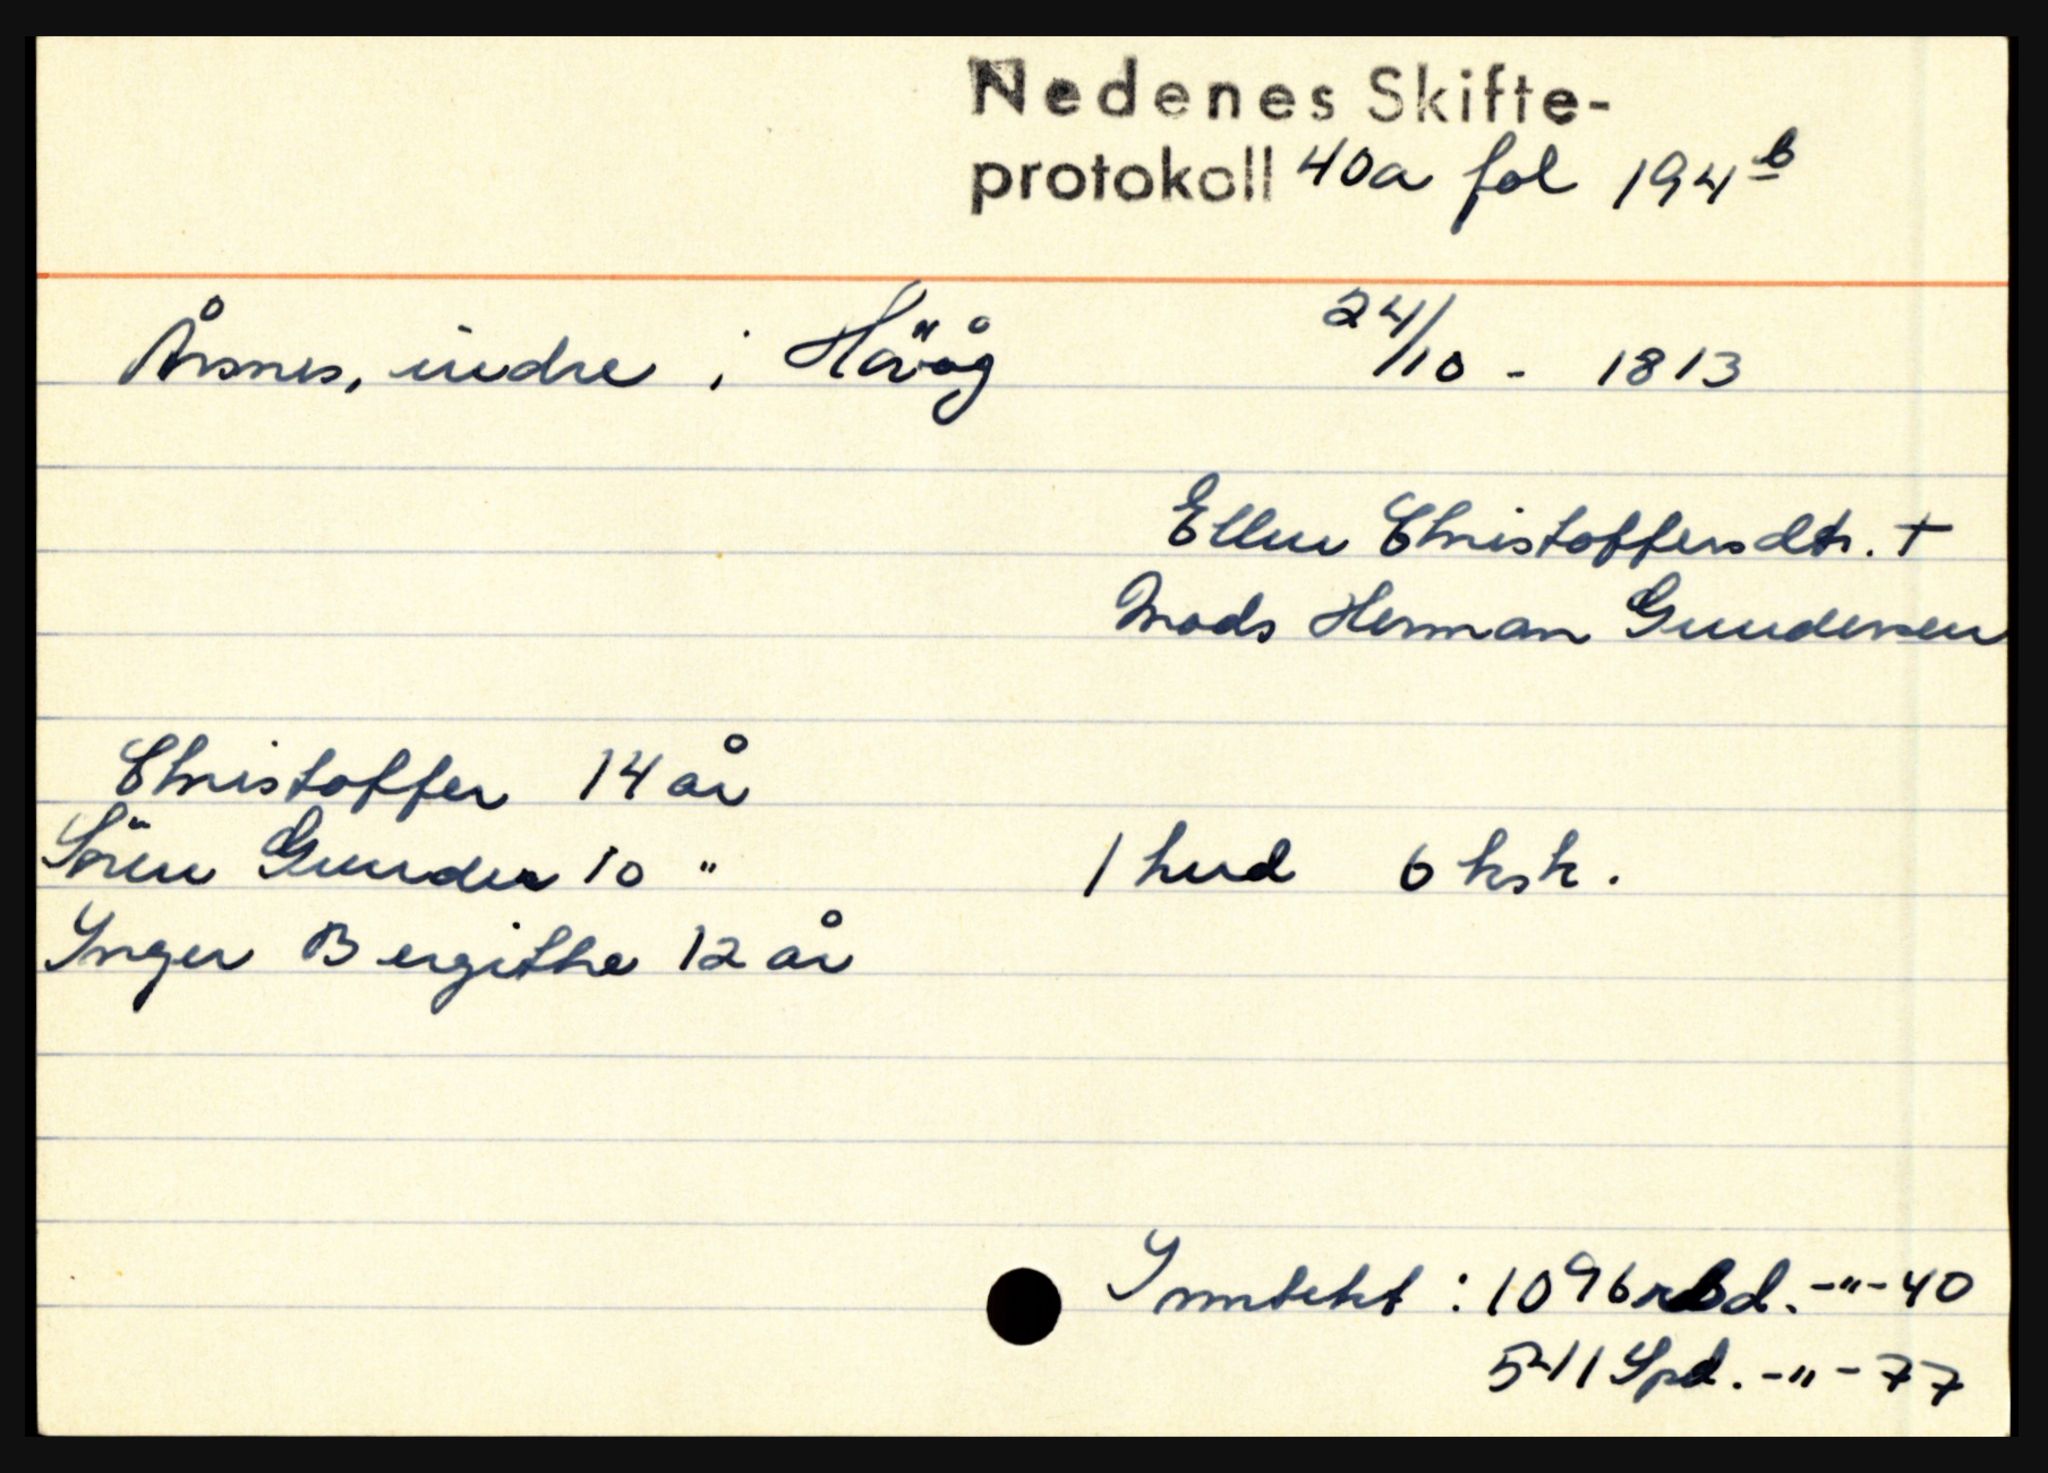 Nedenes Skifte-
protokoll 40a fol 194b
Årsnes, indre i Høvåg 24/10 - 1813
Ellen Christoffersdtr. †
Mads Herman Gundersen
Christoffer 14 år
Sören Gunder 10 " 1 hud 6 ksk.
Inger Bergithe 12 år
Inntekt : 1096 rbd. -"- 40
511 Spd. -"- 77